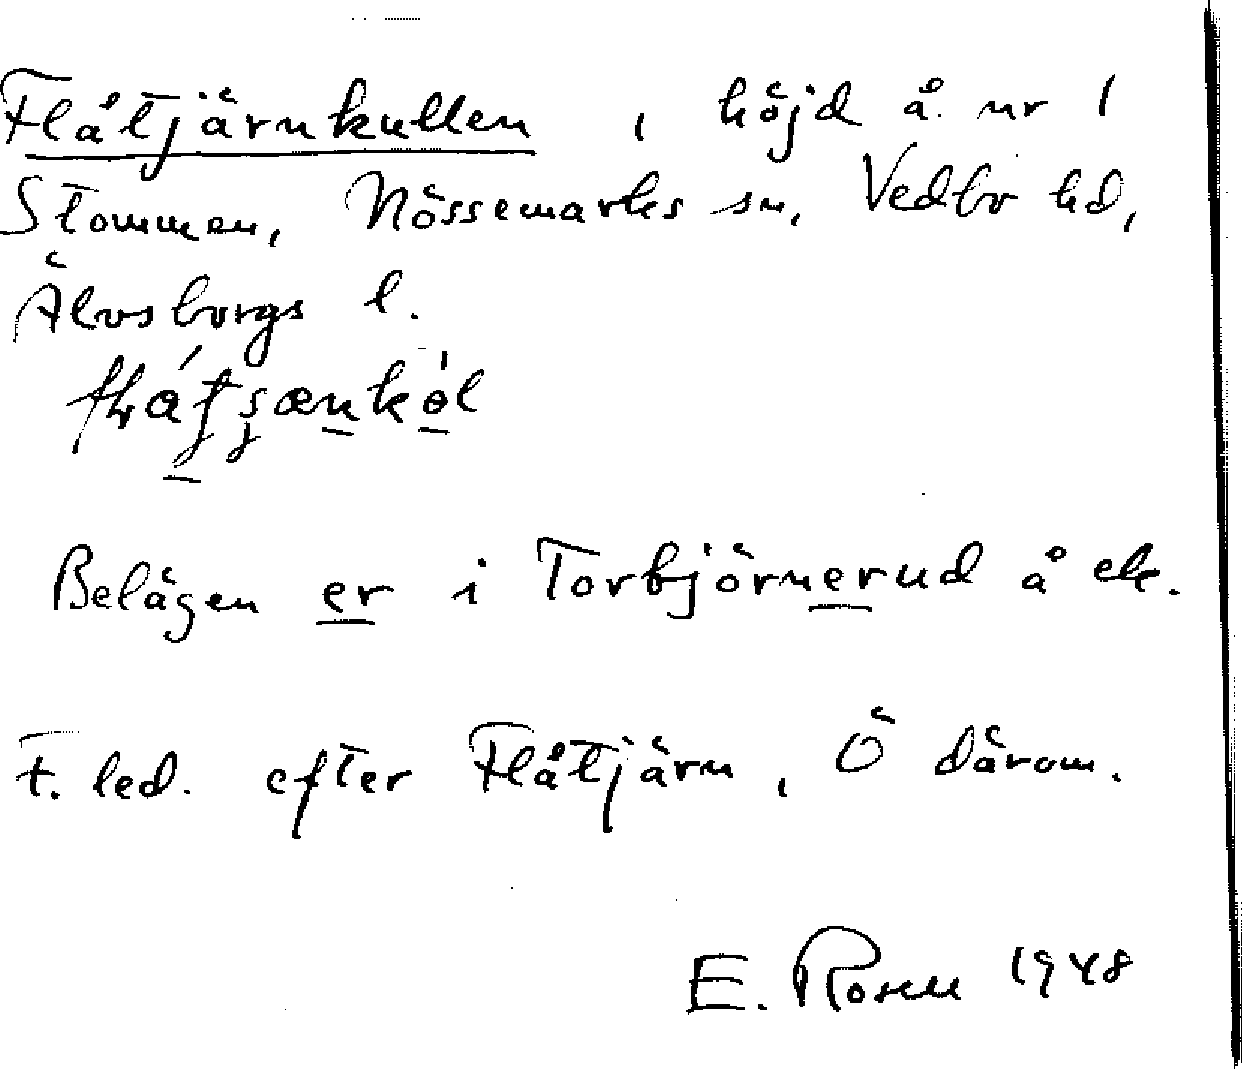 Flåtjärnkullen, höjd å. nr 1
Stommen, Nössemarks sn, Vedbo hd,
Älvsborgs l.
Belägen er i Torbjörnerud å ek.
F. led. efter Flåtjärn, Ö därom.
E. Rosell 1948